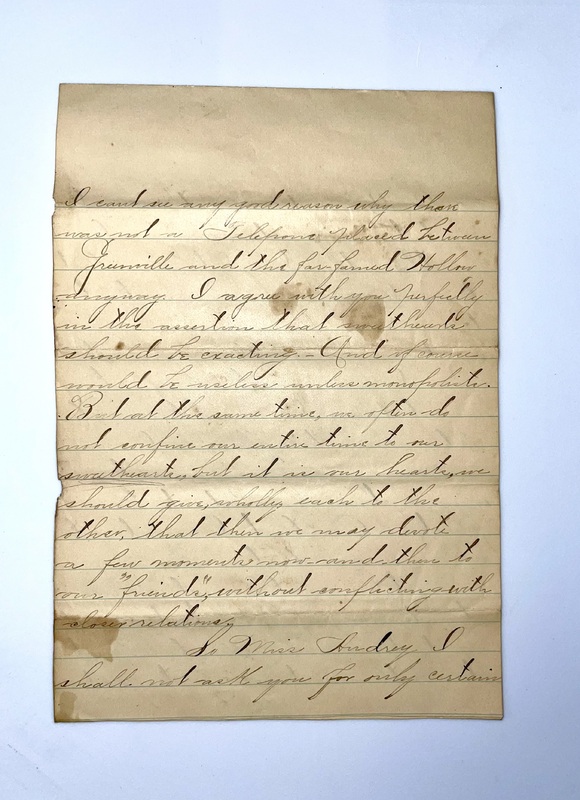 I cant see any good reason why there
was not a Telefone placed between
Greenville and the far-famed Hollow
anyway. I agree with you perfectly
in the assertion that sweethearts
should be exacting. And of course
would be useless unless monopolists.
But at the same time, we often do
not confine our entire time to our
sweethearts, but it is our hearts, we
should give, wholly each to the
other, that then we may devote
a few moments now and then to
our "friends", without conflicting with
closer relations,
So Miss Audrey I
shall not ask you for only certain